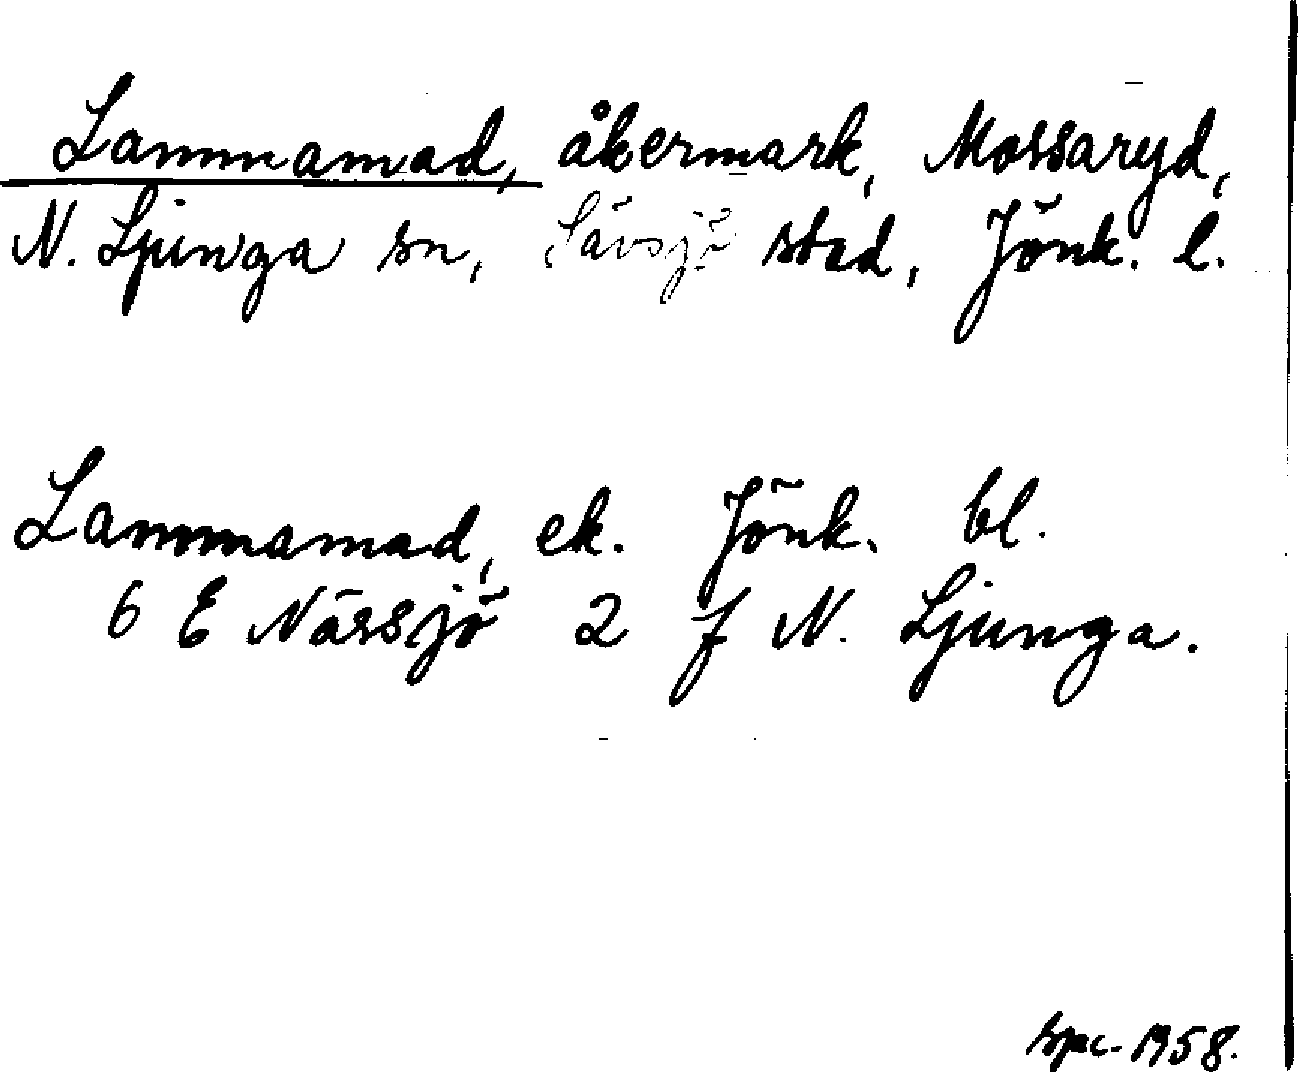 Lammamad, åkermark, Mossaryd,
N. Ljunga sn, Sävsjö stad, Jönk. l.
Lammamad, ek. Jönk. bl.
6 E Nässjö 2 f N. Ljunga.
1958.